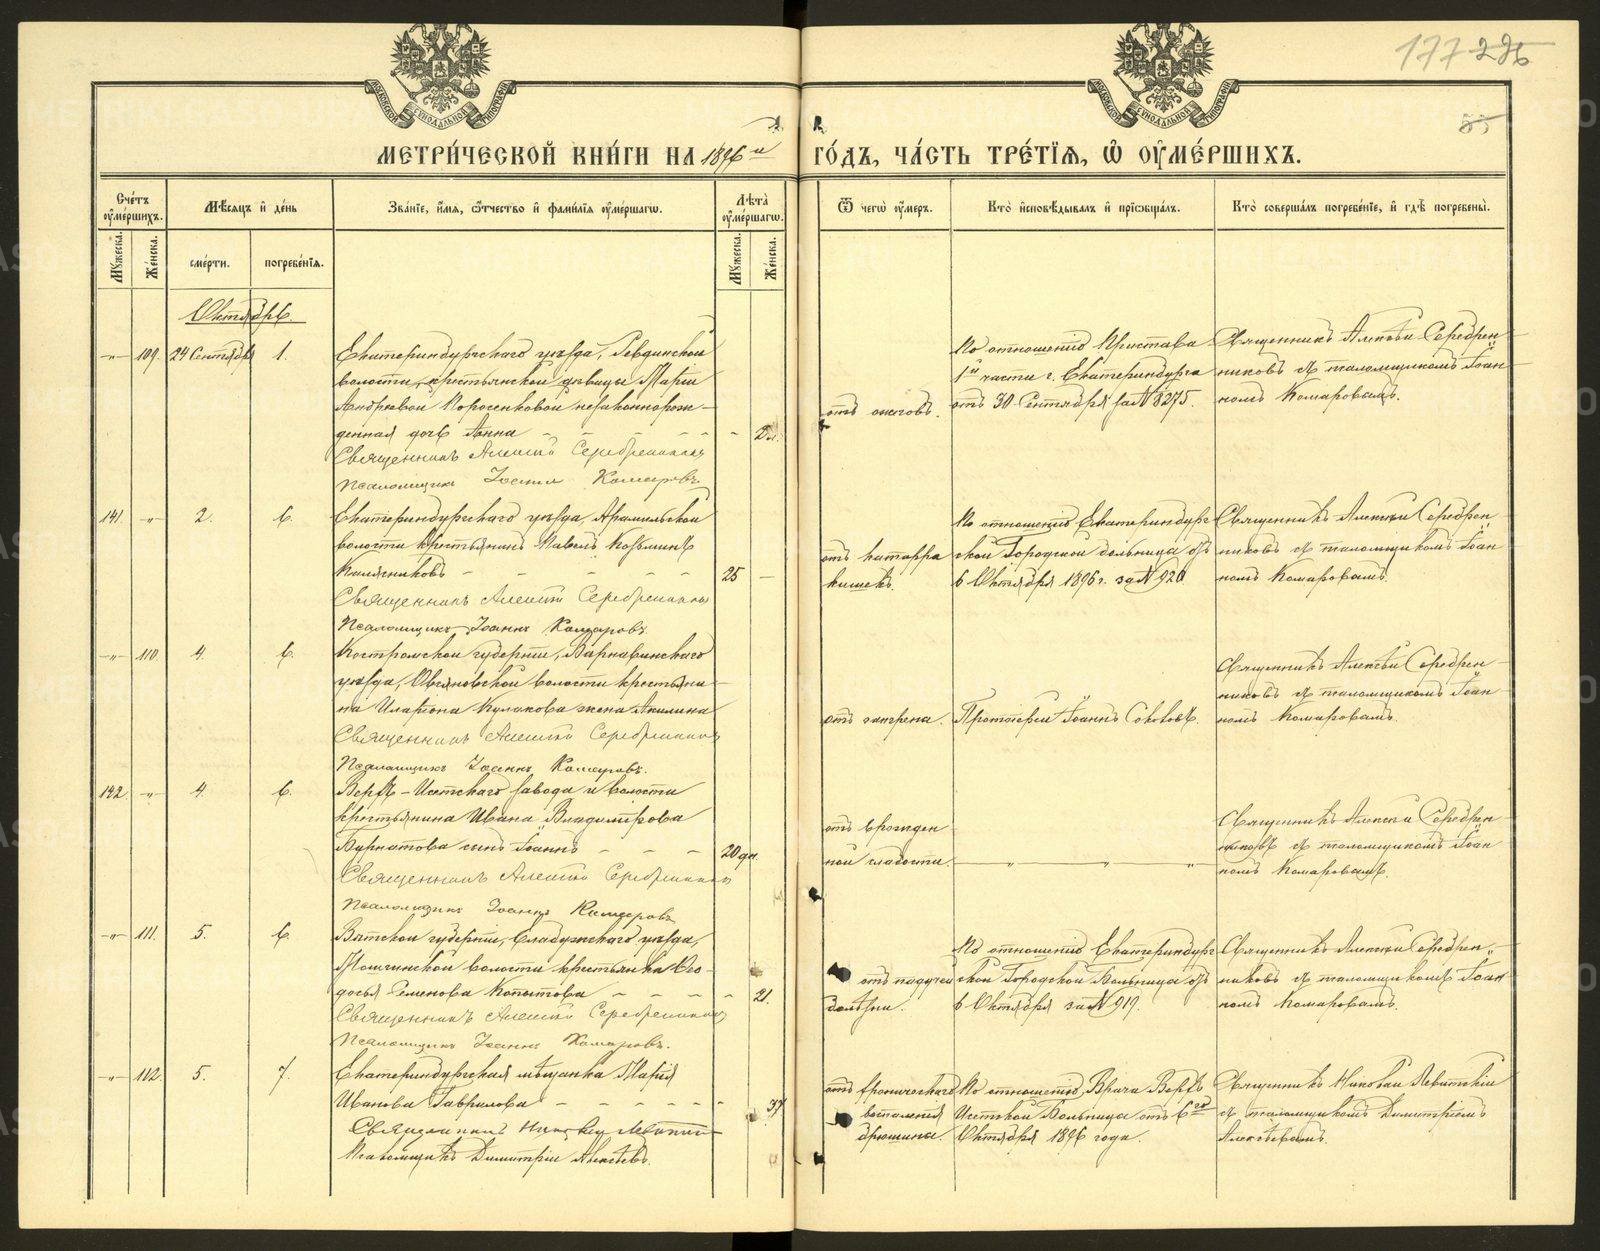 177 226
55
МЕТРИ́ЧЕСКОЙ КНИ́ГИ НА 1896й ГО́ДЪ, ЧА́СТЬ ТРЕ́ТІѦ, Ѡ ОУМЕ́РШИХЪ.
Сче́тъ оуме́ршихъ.
Мѣ́сяцъ и де́нь
Зва́ніе, и́мя, о́тчество и фами́лія оуме́ршагѡ.
Лѣта̀ оуме́ршагѡ.
Ѿ чегѡ̀ оу́меръ.
Кто̀ и҆сповѣ́дывалъ и прїѡбща́лъ.
Кто̀ соверша́лъ погребе́нїе, и гдѣ̀ погребены̀.
Мꙋ́жеска.
Же́нска.
сме́рти.
погребе́нїѧ.
Мꙋ́жеска.
Же́нска.
Октябрь.
-"- 109. 24 Сентября 1.
Екатеринбургскаго уѣзда, Ревдинской
волости, крестьянской дѣвицы Маріи
Андреевой Поросенковой незаконнорож-
денная дочь Анна
2 л.
Священникъ Алексій Серебренниковъ
Псаломщикъ Іоаннъ Комаровъ
отъ ожоговъ.
По отношенію Пристава
1й части г. Екатеринбурга
отъ 30 Сентября за №8275.
Священникъ Алексѣй Серебрен-
никовъ съ псаломщикомъ Іоан-
номъ Комаровымъ.
141. -"- 2. 6.
Екатеринбургскаго уѣзда, Арамильской
волости крестьянинъ Павелъ Козьминъ
Калясниковъ
25 -
Священникъ Алексій Серебренниковъ
Псаломщикъ Іоаннъ Комаровъ.
отъ катарра
кишекъ.
По отношенію Екатеринбург-
ской Городской больницы отъ
6 Октября 1896 г. за №920
Священникъ Алексѣй Серебрен-
никовъ съ псаломщикомъ Іоан-
номъ Комаровымъ.
-"- 110. 4. 6.
Костромской губерніи, Варнавинскаго
уѣзда, волости крестьяни-
на Иларіона Кулакова жена Акилина
Священникъ Алексій Серебренниковъ
Псаломщикъ Іоаннъ Комаровъ.
отъ
Протоіерей Іоаннъ Соколовъ.
Священникъ Алексѣй Серебрен-
никовъ съ псаломщикомъ Іоан-
номъ Комаровымъ.
142. -"- 4. 6.
Верхъ-Исетскаго завода и волости
крестьянина Ивана Владимірова
Бурматова сынъ Іоаннъ
20 дн.
Священникъ Алексій Серебренниковъ
Псаломщикъ Іоаннъ Комаровъ
отъ врожден-
ной слабости.
-"- -"- -"-
Священникъ Алексѣй Серебрен-
никовъ съ псаломщикомъ Іоан-
номъ Комаровымъ.
-"- 111. 5. 6.
Вятской губерніи, Елабужскаго уѣзда,
волости крестьянка Ѳео-
досья Семенова Копытова
21.
Священникъ Алексій Серебренниковъ
Псаломщикъ Іоаннъ Комаровъ.
отъ падучей
болѣзни.
По отношенію Екатеринбург-
ской Городской Больницы отъ
6 Октября за №919.
Священникъ Алексѣй Серебрен-
никовъ съ псаломщикомъ Іоан-
номъ Комаровымъ.
-"- 112. 5. 7.
Екатеринбургская мѣщанка Марія
Иванова Гаврилова
37
Священникъ Николай Левитскій
Псаломщикъ Димитрій Алексѣевъ.
отъ хроническаго
воспаленія
брюшины.
По отношенію Врача Верхъ-
Исетской Больницы отъ 6го
Октября 1896 года.
Священникъ Николай Левитскій
съ псаломщикомъ Димитріемъ
Алексѣевымъ.